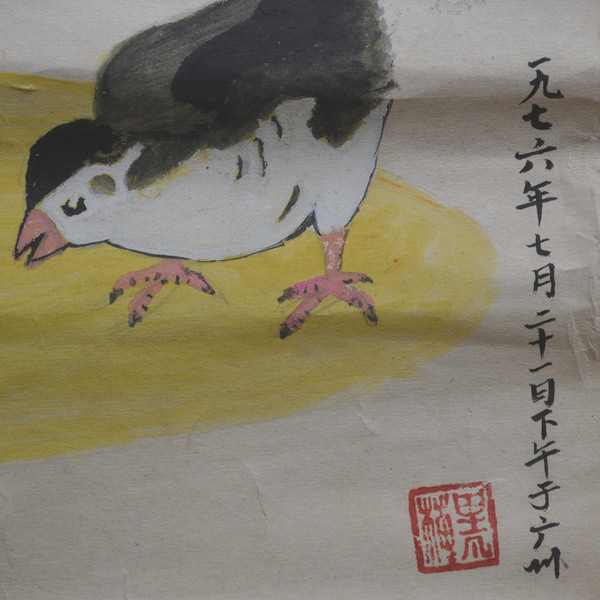 一九七六年七月二十一日下午于广州